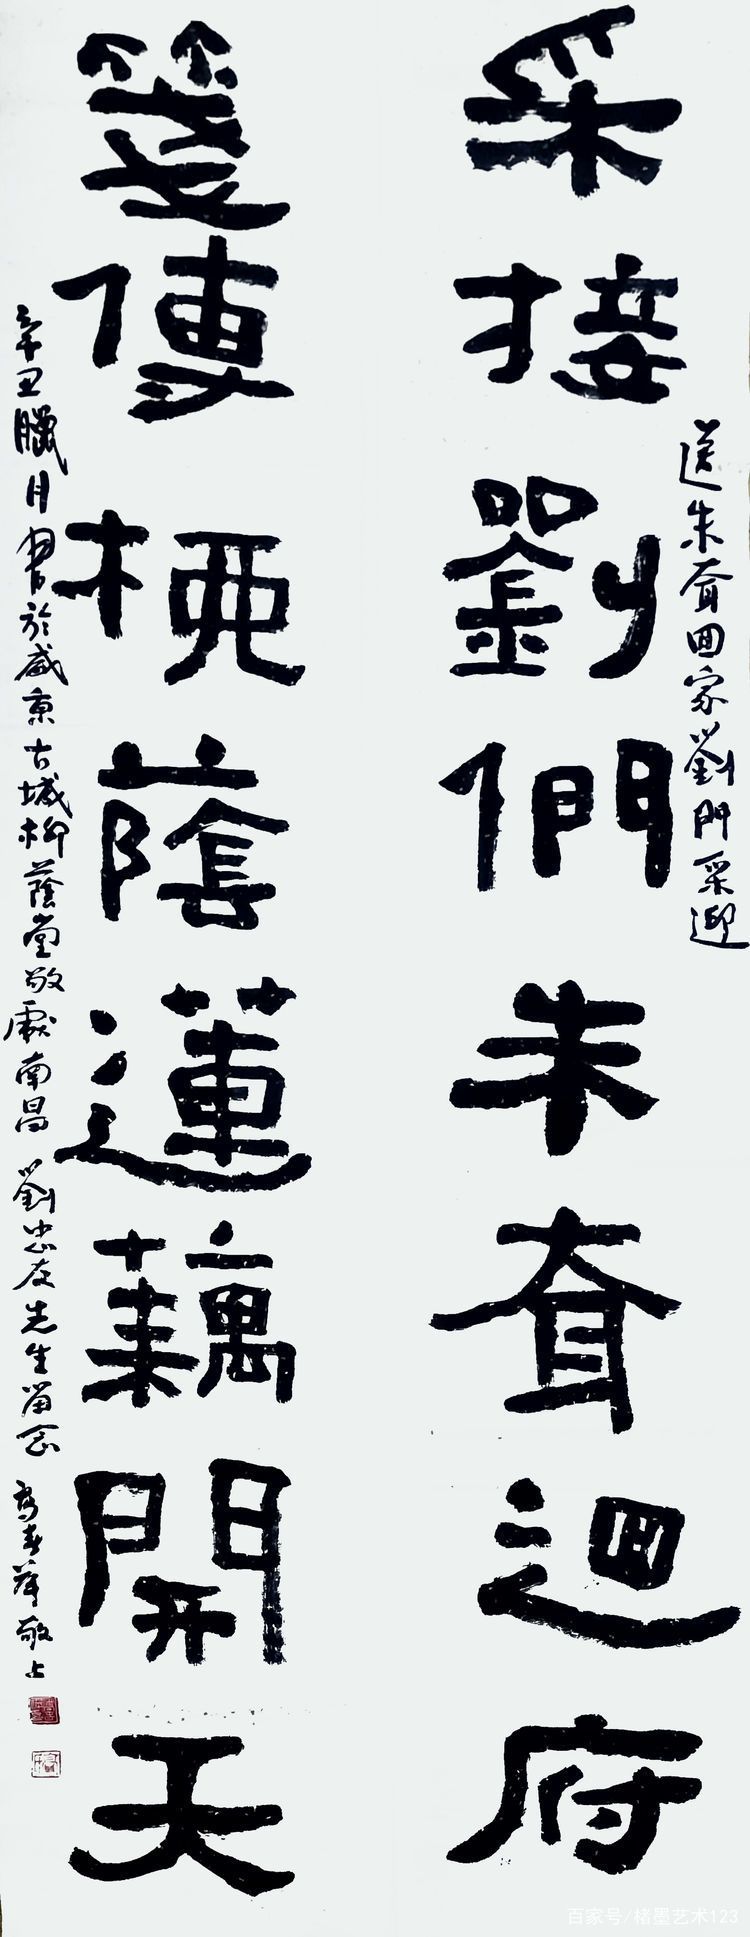 送朱耷囬家劉門采迎
采接劉們朱耷迴府
箋傳栖蔭蓮藕開天
辛丑臘月書於盛京古城柳蔭堂敬獻南昌 劉忠友先生留念 高春敬上
百家号/楮墨艺术123